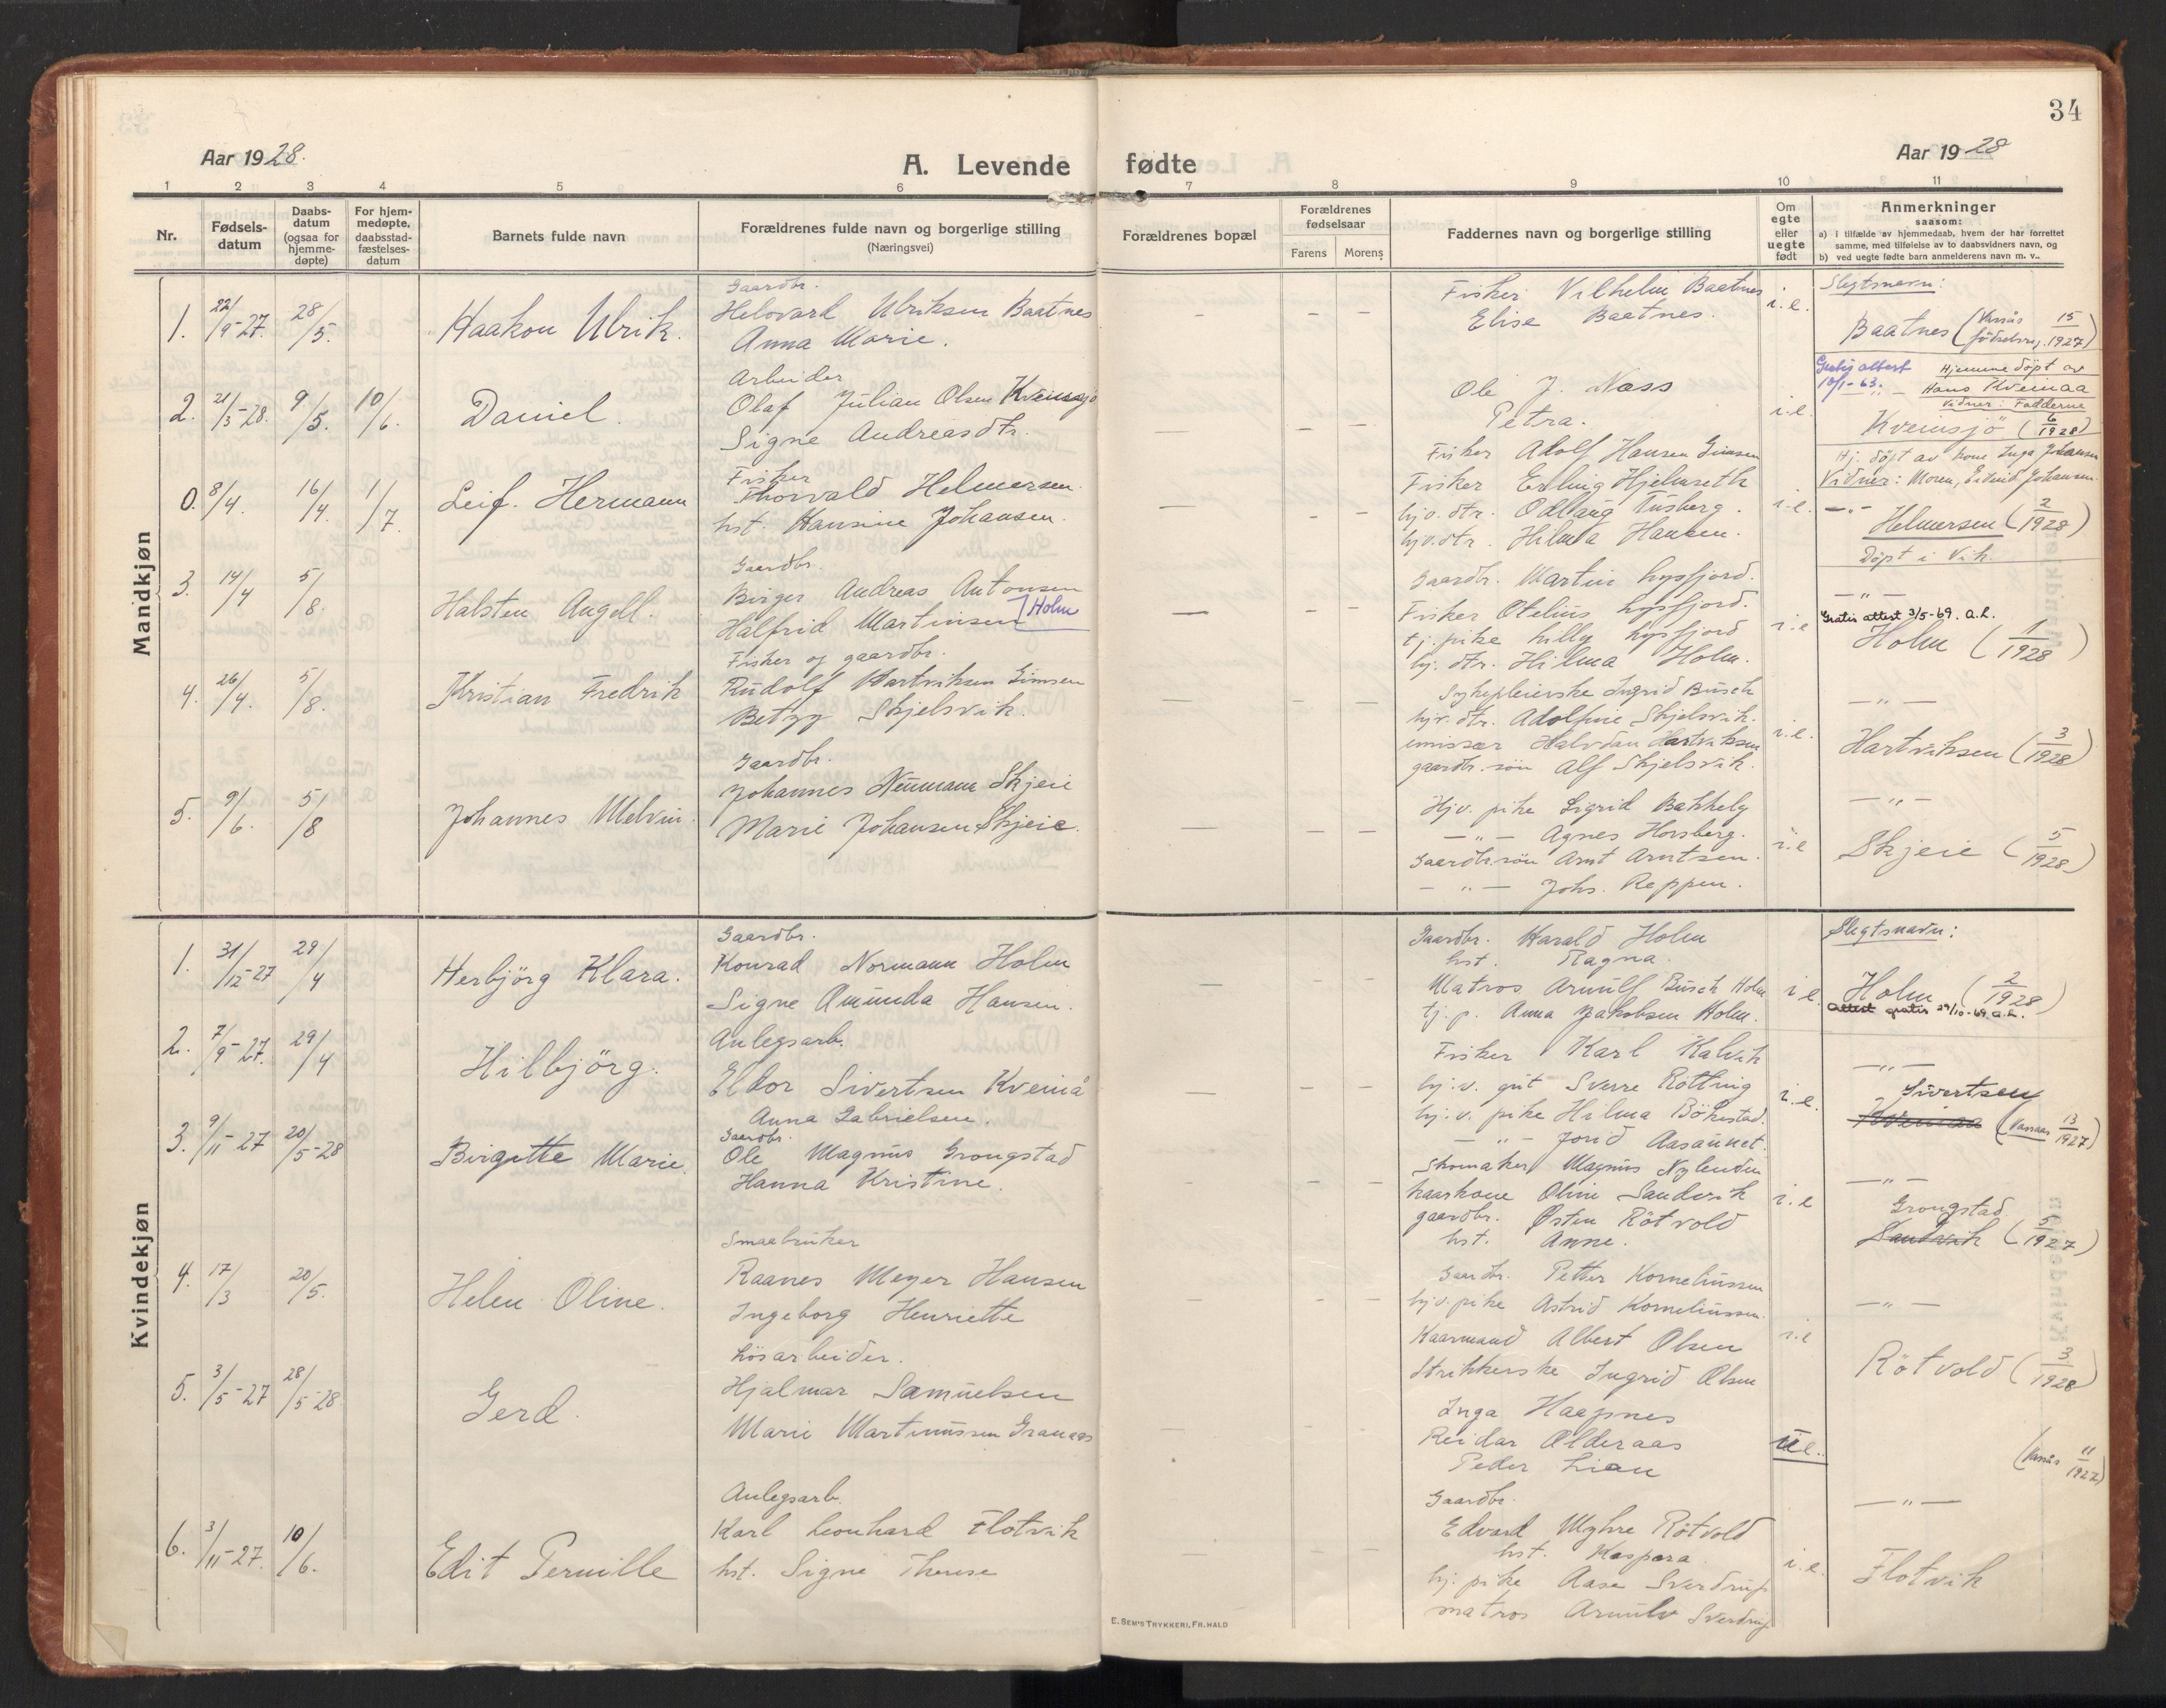 34
Aar 1928.
A. Levende fødte
Aar 1928
1 2 3 4 5 6 7 8 9 10 11
Nr.
Fødsels-
datum
Daabs-
datum
(ogsaa for
hjemme-
døpte)
For hjem-
medøpte,
daabsstad-
fæstelses-
datum
Barnets fulde navn
Forældrenes fulde navn og borgerlige stilling
(Næringsvei)
Forældrenes bopæl
Forældrenes
fødselsaar
Farens Morens
Faddernes navn og borgerlige stilling
Om
egte
eller
uegte
født
Anmerkninger
saasom:
a) i tilfælde av hjemmedaab, hvem der har forrettet
samme, med tilføielse av to daabsvidners navn, og
b) ved uegte fødte barn anmelderens navn m. v..
Mandkjøn
1. 22/9-27. 28/5. Haakon Ulrik.
Gaardbr.
Helovard Ulriksen Baatnes
Anna Marie.
Fisker Vilhelm Baatnes
Elise Baatnes.
i.e.
Slegtsnavn:
Baatnes (Vassås fødselsreg. 15/1927)
2. 21/3-28. 9/5. 10/6. Daniel.
Arbeider
Olaf Julian Olsen Kveinsjö
Signe Andreasdtr.
Ole J. Næss
Petra.
i.e.
10/1-63.
Hjemmedöpt av
Hans Kveinaa
Vidner: Fadderne
Kveinsjö (6/1928)
0. 8/4. 16/4. 1/7 Leif. Hermann
Fisker
Thorvald Helmersen.
hst. Hansine Johansen.
Fisker Adolf Hansen Simsen
Fisker Erling Hjelmseth
hj.v. dtr. Odlaug Tusberg.
hj.v. dtr. Hilma Hansen.
i.e.
Hj. döpt av kone Inga Johansen
Vidner: Moren, Eidvid Johansen.
—"— Helmersen (2/1928)
Döpt i Vik.
3. 14/4 5/8. Halsten Angell.
Gaardbr.
Birger Andreas Antonsen
Halfrid Martinsen } Holm
Gaardbr. Martin Lysfjord.
Fisker Otelius Lysfjord.
tj. pike Lilly Lysfjord
hj. dtr. Hilma Holm.
i.e
—"—
Gratis attest 3/5-69. a.L.
Holm (1/1928)
4. 26/4. 5/8. Kristian Fredrik
Fisker og gaardbr.
Rudolf Hartviksen Simsen
Betzy Skjelsvik.
Sykepleierske Ingrid Busch
hj.v. dtr. Adolfine Skjelsvik.
emissær Halvdan Hartviksen
gaardbr. sön Alf Skjelsvik.
i.e.
—"—
Hartviksen (3/1928)
5. 9/6. 5/8 Johannes Melvin.
Gaardbr.
Johannes Neumann Skjeie
Marie Johansen Skjeie.
Hj.v. pike Sigrid Bakkely
—"— Agnes Horsberg.
Gaardbr. sön Arnt Arntsen.
—"— Johs. Reppen.
i.e
—"—
Skjeie (5/1928)
Kvindekjøn
1. 31/12-27 29/4 Herbjörg Klara.
Gaardbr.
Konrad Normann Holm
Signe Amunda Hansen.
Gaardbr. Harald Holm
hst. Ragna.
Matros Arnulf Busch Holm
tj. p. Anna Jakobsen Holm.
i.e
Slegtsnavn:
Holm (2/1928)
Attest gratis 29/10-69 a.L.
2. 7/9-27. 29/4 Hilbjörg.
Anlegsarb.
Eldor Sivertsen Kveinå
Anna Gabrielsen.
Fisker Karl Kalvik
hj.v. gut Sverre Rötting
hj.v. pike Hilma Bökestad.
—"— Jorid Aasaunet.
i.e.
—"—
Sivertsen
Kveinaa (Vassaas 13/1927)
3. 9/11-27 20/5-28 Birgitte Marie.
Gaardbr.
Ole Magnus Grongstad
Hanna Kristine.
Skomaker Magnus Nylenden
kaarkone Oline Sandvik
gaardbr. Østen Rötvold
hst. Anne.
i.e
—"—
Grongstad.
Sandvik (5/1927)
4. 17/3 20/5. Helen Oline.
Smaabruker
Raanes Meyer Hansen
Ingeborg Henriette
Gaardbr. Petter Korneliussen
hj.v. pike Astrid Korneliussen.
Kaarmand Albert Olsen
Strikkerske Ingrid Olsen
i.e
—"—
Rötvold (3/1928)
5. 3/5-27 28/5-28 Gerd.
Lösarbeider.
Hjalmar Samuelsen
Marie Martinussen Granaas
Inga Haagsnes
Reidar Olderaas
Peder Lian
u.e.
(Vassås 11/1927)
6. 3/11-27. 10/6. Edit Pernille
Anlegsarb.
Karl Leonhard Flotvik
hst. Signe Therese
Gaardbr.
Edvard Myhre Rötvold
hst. Kaspara.
hj. pike Aase Sverdrup
matros Arnulv Sverdrup
i.e.
—"—
Flotvik
E. SEM'S TRYKKERI, FR.HALD